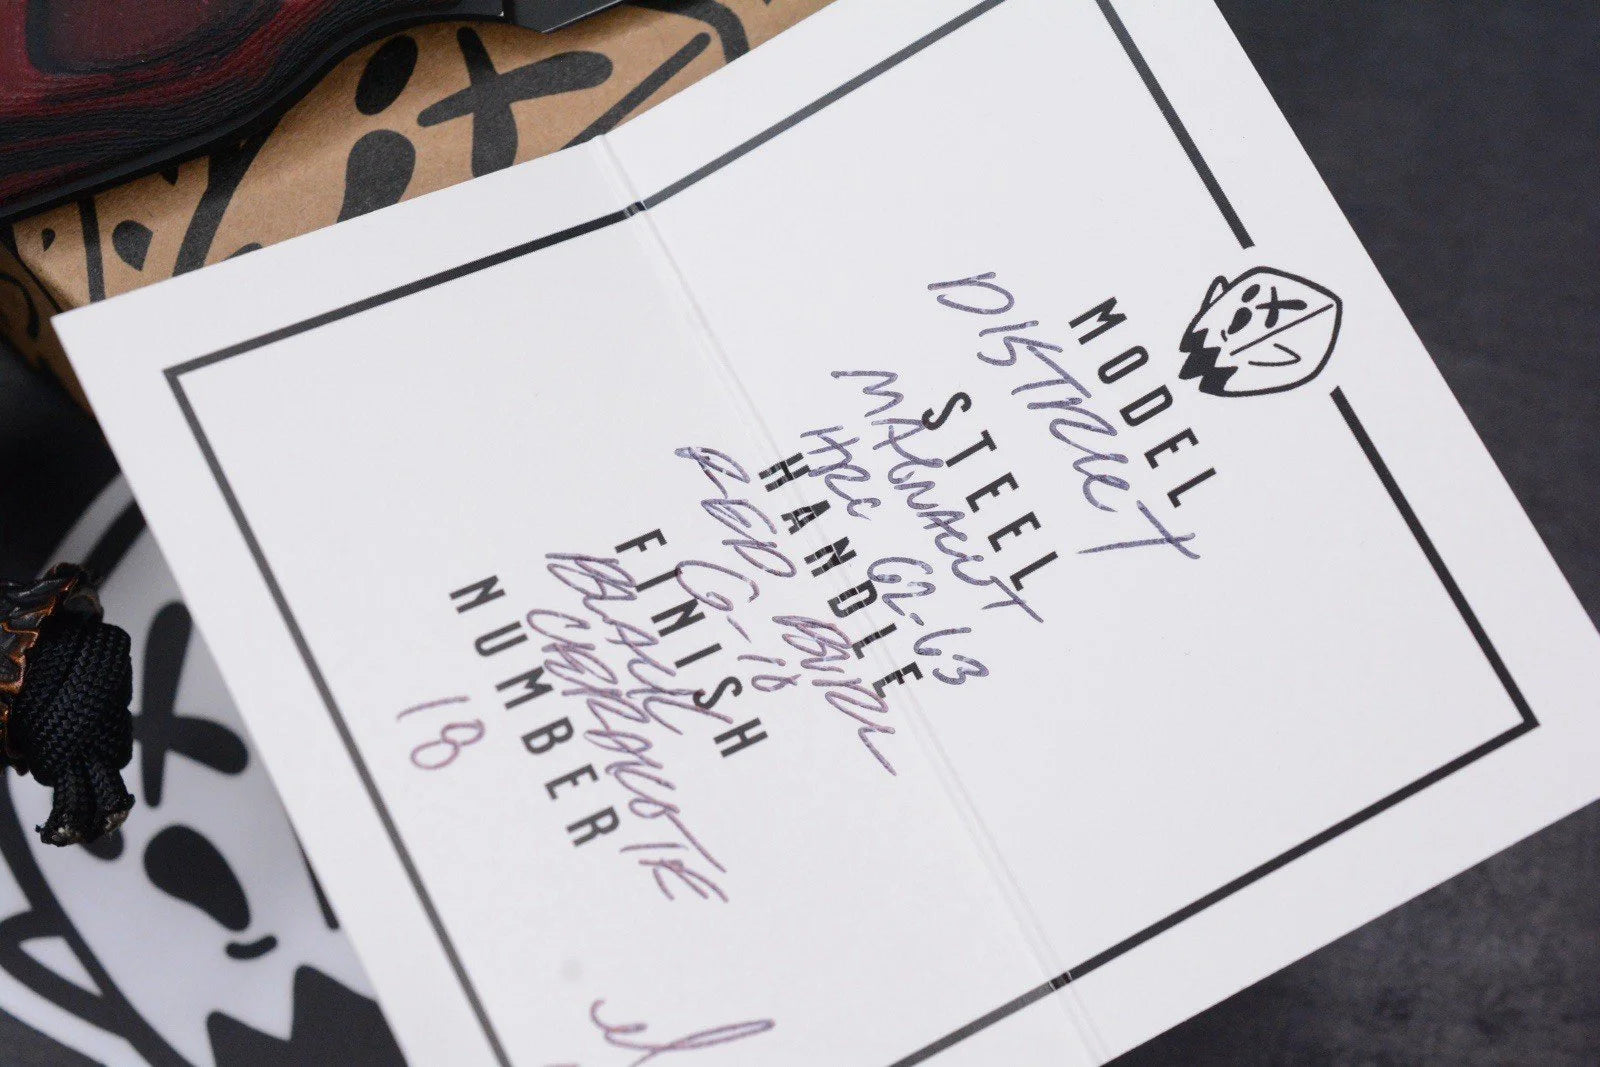 MODEL
DISTRICT
STEEL
MAGNACUT
HRC 62-63
HANDLE
RED BLK
G-10
FINISH
BLACK
CERAKOTE
NUMBER
18